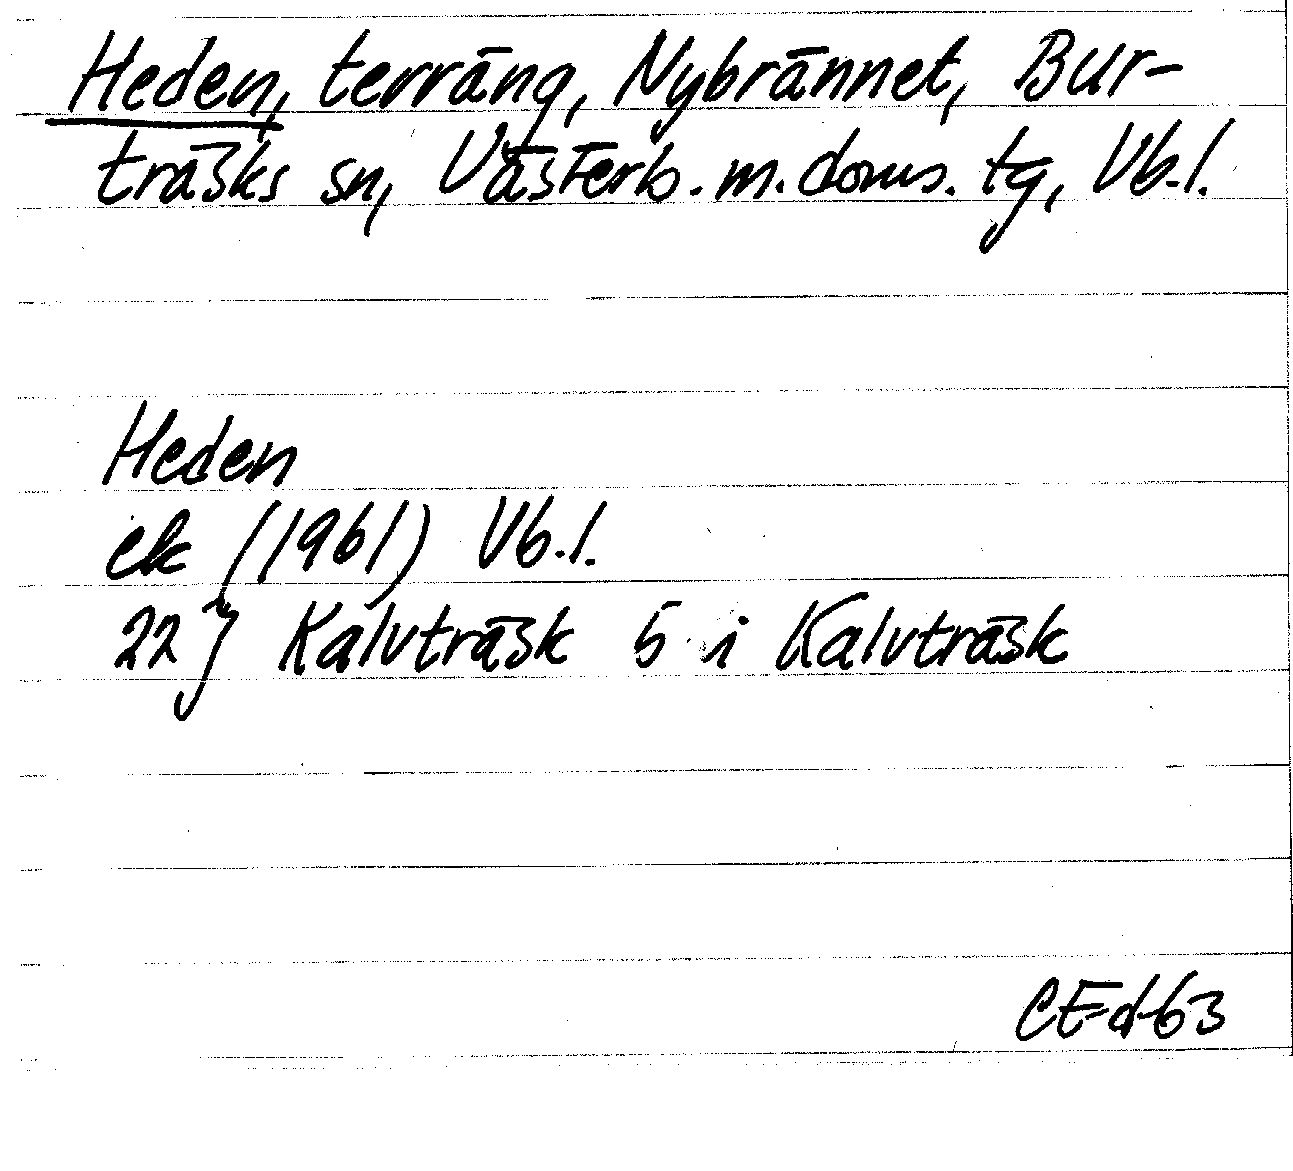 Heden, terräng, Nybrännet, Bur-
träsks sn, Västerb. m. doms. tg, Vb. l.
Heden
ek (1961) Vb. l.
22 J Kalvträsk 5 i Kalvträsk
CEd-63